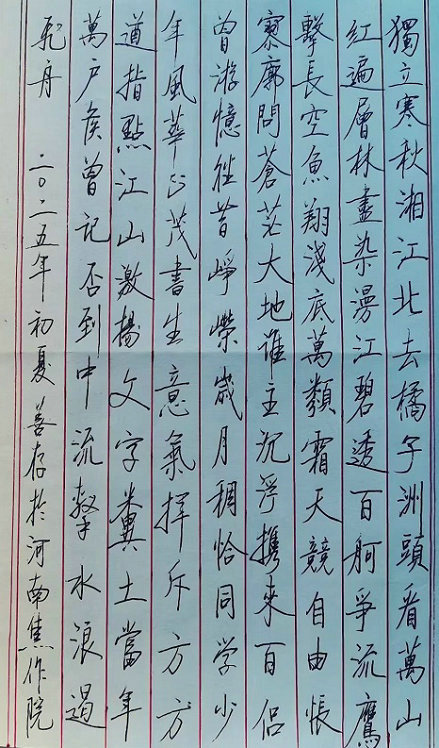 獨立寒秋湘江北去橘子洲頭看萬山
紅遍層林盡染漫江碧透百舸爭流鷹
擊長空魚翔淺底萬類霜天競自由悵
寥廓問蒼茫大地誰主沉浮攜來百侣
曾游憶往昔崢嶸歲月稠恰同学少
年風華正茂書生意氣揮斥方方
道指點江山激揚文字糞土當年
萬户侯曾記否到中流擊水浪遏
飛舟 二〇二五年初夏善存於河南焦作院